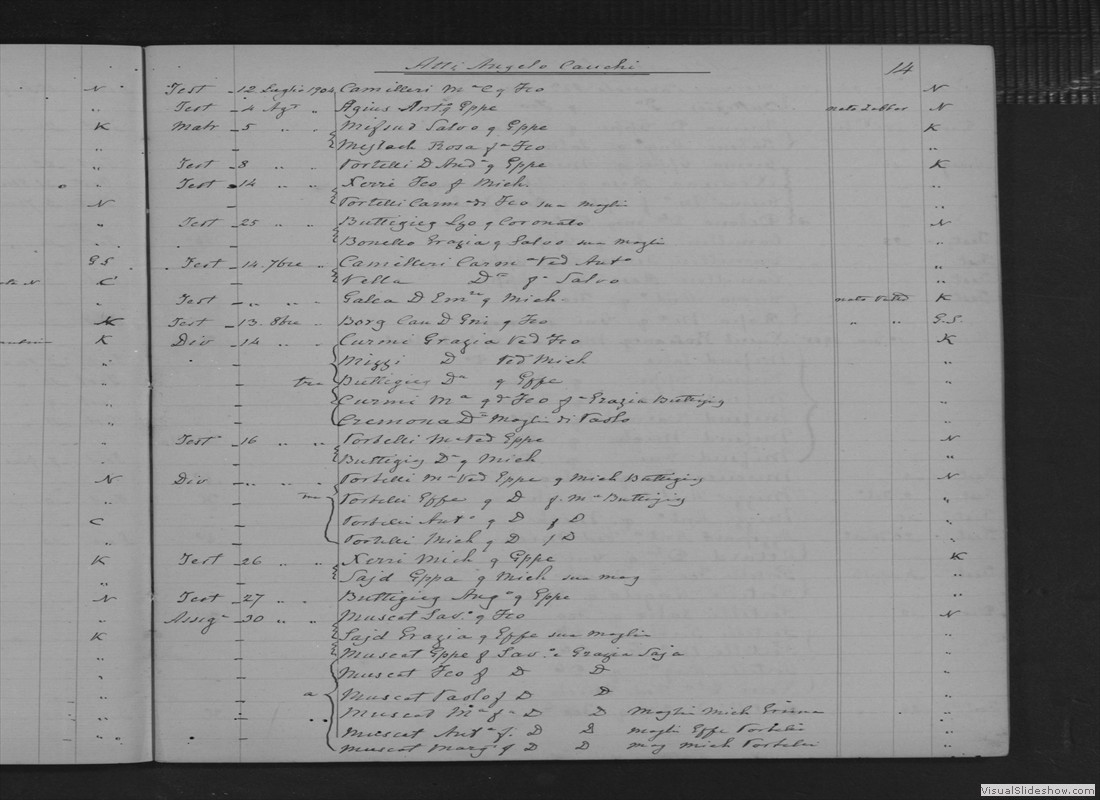 Atti Angelo Cauchi 14
N Test 12 Luglio 1904 Camilleri Mª q Fco N
" Test 4 Agt " Agius Antº q Eppe nato Zabbar N
K Matr 5 " " Mifsud Salvo q Eppe K
" Rosa fª Fco "
" Test 8 " " Portelli D Andª q Eppe K
" Test 14 " " Xerri Fco f Mich. "
N Portelli Carmª di Fco sua moglie "
" Test 25 " " Buttigieg q Coronato N
" Bonello Grazia q Salvo sua moglie "
G.S. Test 14. 7bre " Camilleri Carmª Ved Antº "
C Vella Dª fª Salvo "
" Test " " " Galea D q Mich nato K
Test 13. 8bre " Borg Can D q Fco " " G.S.
K Div 14 " " Curmi Grazia Ved Fco K
" Mizzi D Ved Mich "
" tra Buttigieg Dª q Eppe "
" Curmi Mª Fco fª Grazia Buttigieg "
" Cremona Dª Moglie di Paolo "
" Test 16 " " Portelli Mª Ved Eppe N
" Buttigieg Dª q Mich "
N Div " " " Portelli Mª Ved Eppe q Mich Buttigieg N
" Portelli Eppe q D f. Mª Buttigieg "
C Portelli Antº q D f D "
" Portelli Mich q D f D "
K Test 26 " " Xerri Mich q Eppe K
" Sajd Eppa q Mich sua mog "
N Test 27 " " Buttigieg Angº q Eppe "
" Assegª 30 " " Muscat Sav.º q Fco N
K Sajd Grazia q Eppe sua moglie "
" Muscat Eppe f Sav.º e Grazia Sajd "
" Muscat Fco f D D "
" a Muscat Paolo f D D "
" Muscat Mª fª D D moglie Mich "
" Muscat Antª f. D D moglie Eppe Portelli "
Muscat f D D mog Mich Portelli "
VisualSlideshow.com